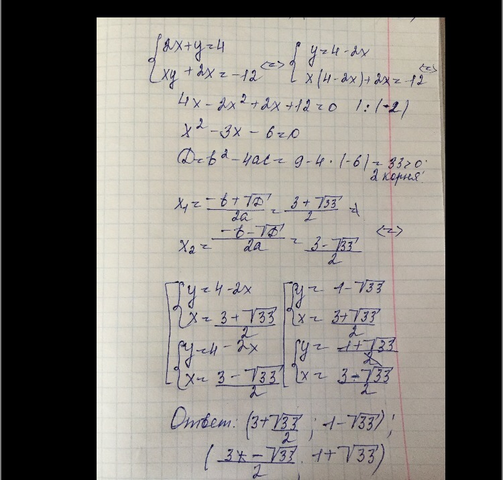 {2x+y=4 {y=4-2x
{xy+2x=-12 <=> {x(4-2x)+2x=-12 <=>
4x-2x²+2x+12=0 |:(-2)
x²-3x-6=0
D=b²-4ac=9-4·(-6)=33>0.
2 корня.
x₁=(-b+√D)/2a=(3+√33)/2 =>
x₂=(-b-√D)/2a=(3-√33)/2 <=>
[{y=4-2x [{y=1-√33
{x=(3+√33)/2 {x=(3+√33)/2
{y=4-2x {y=1+√33
{x=(3-√33)/2 {x=(3-√33)/2
Ответ: ((3+√33)/2; 1-√33);
((3-√33)/2; 1+√33)